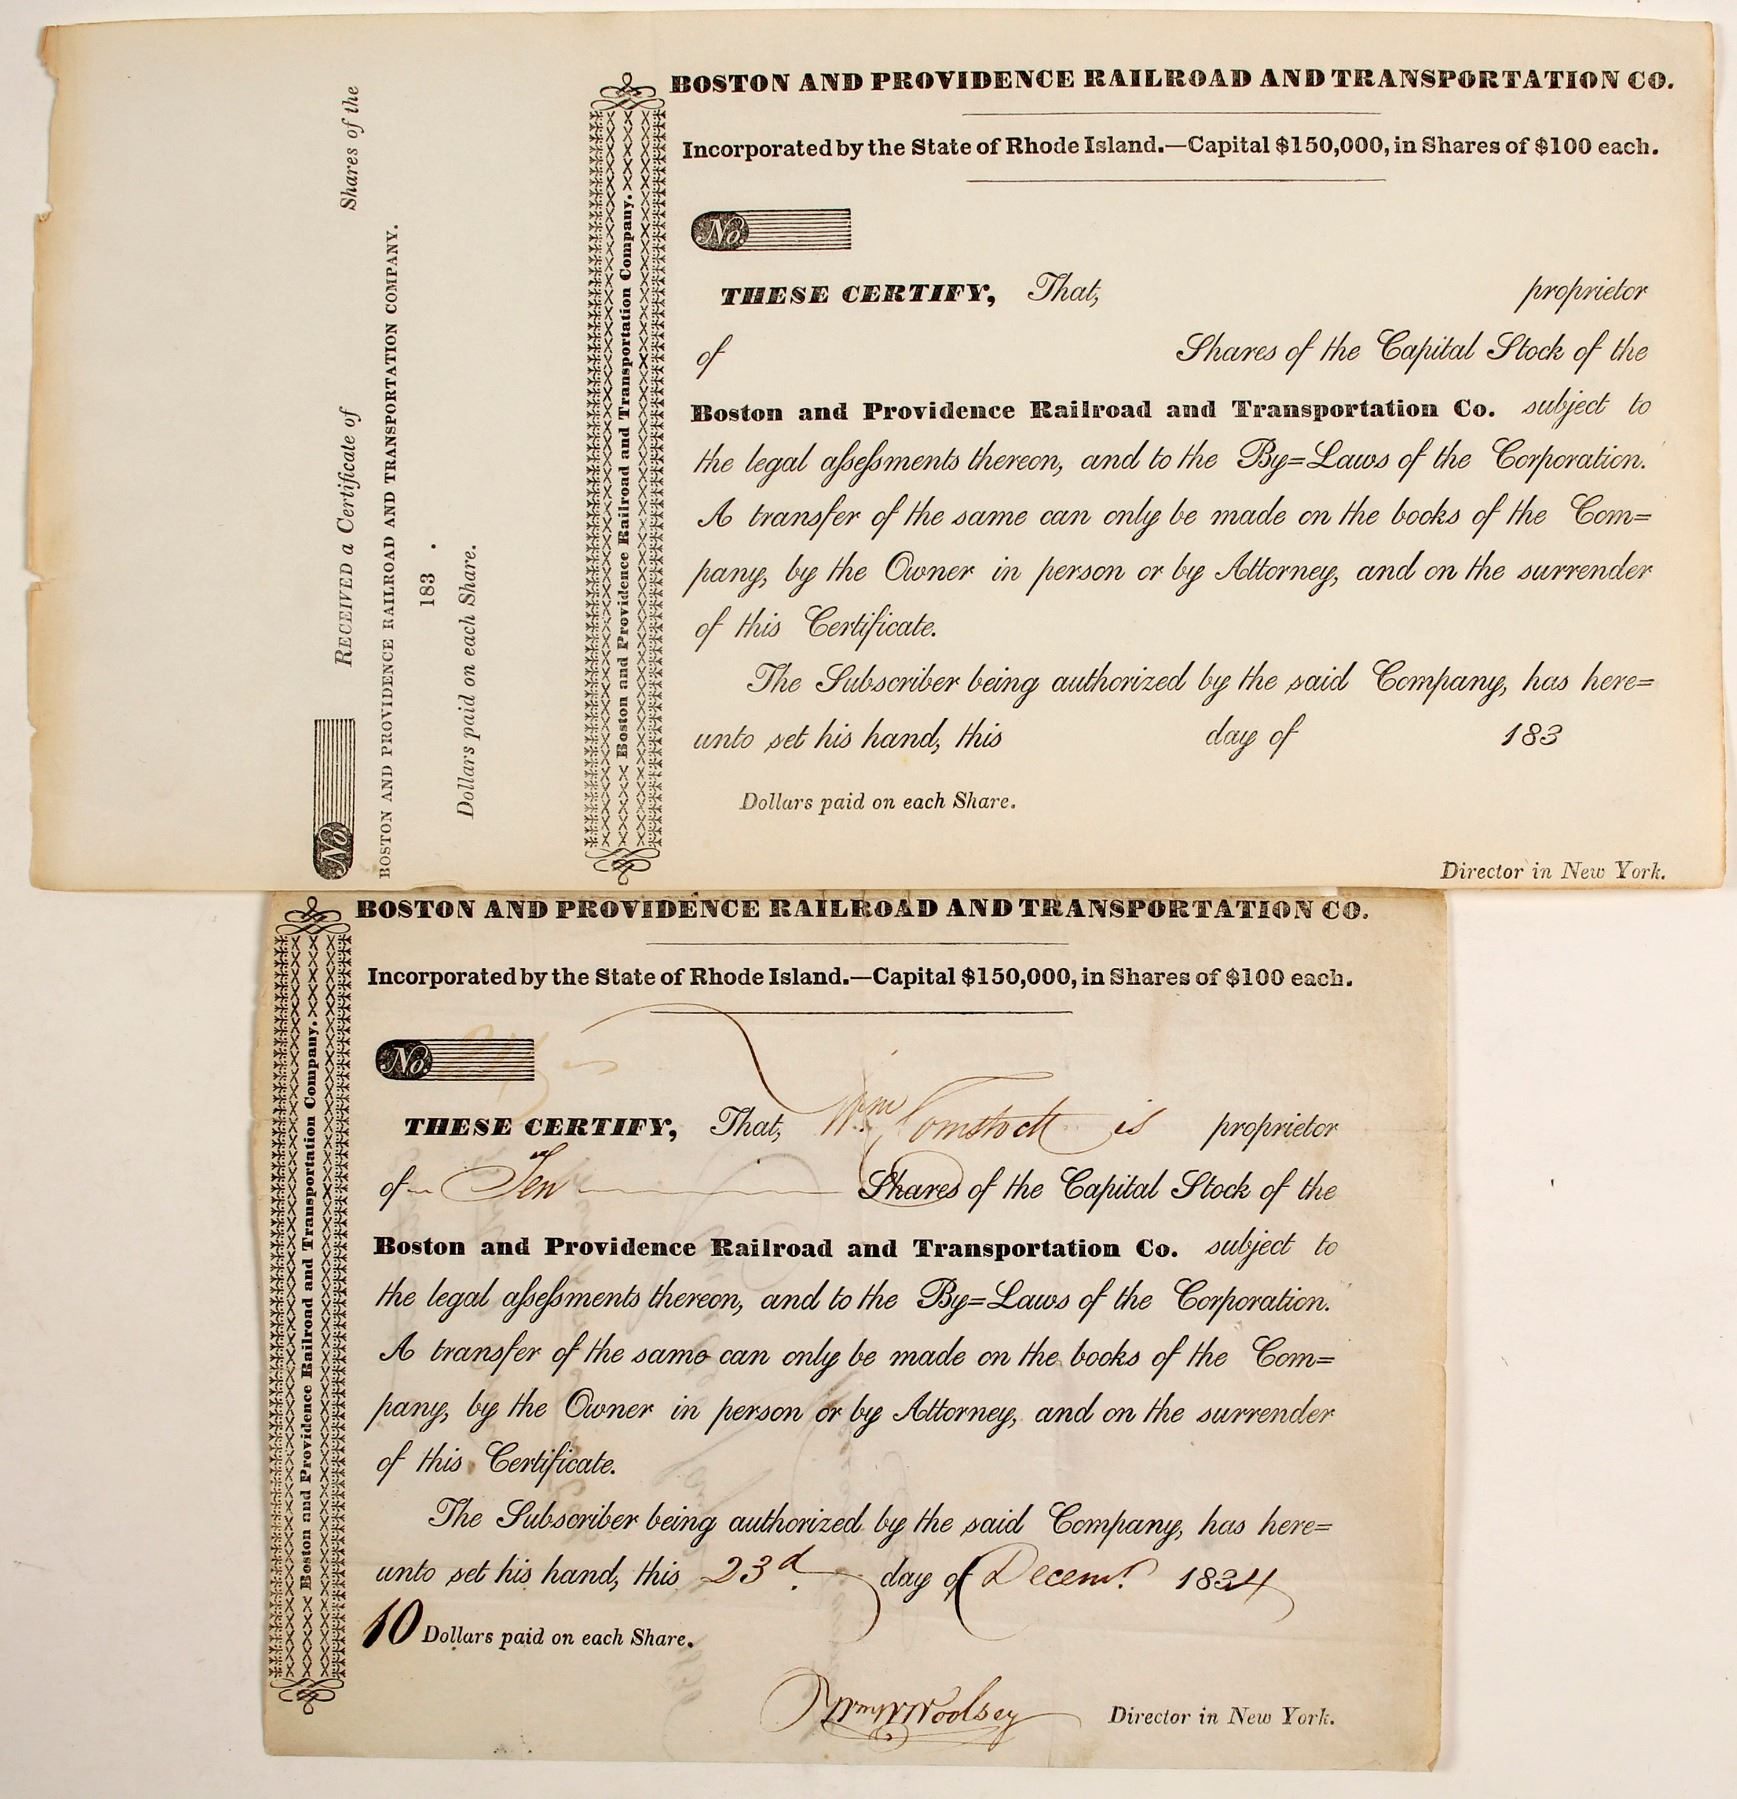 Shares of the
RECEIVED a Certificate of
BOSTON AND PROVIDENCE RAILROAD AND TRANSPORTATION COMPANY.
183 .
Dollars paid on each Share.
No.
Boston and Providence Railroad and Transportation Company.
BOSTON AND PROVIDENCE RAILROAD AND TRANSPORTATION CO.
Incorporated by the State of Rhode Island.—Capital $150,000, in Shares of $100 each.
No.
THESE CERTIFY, That, proprietor
of Shares of the Capital Stock of the
Boston and Providence Railroad and Transportation Co. subject to
the legal aſseſsments thereon, and to the By=Laws of the Corporation.
A transfer of the same can only be made on the books of the Com=
pany, by the Owner in person or by Attorney, and on the surrender
of this Certificate.
The Subscriber being authorized by the said Company, has here=
unto set his hand, this day of 183
Dollars paid on each Share.
Director in New York.
Boston and Providence Railroad and Transportation Company.
BOSTON AND PROVIDENCE RAILROAD AND TRANSPORTATION CO.
Incorporated by the State of Rhode Island.—Capital $150,000, in Shares of $100 each.
No.
THESE CERTIFY, That, Wm Comstock is proprietor
of Ten Shares of the Capital Stock of the
Boston and Providence Railroad and Transportation Co. subject to
the legal aſseſsments thereon, and to the By=Laws of the Corporation.
A transfer of the same can only be made on the books of the Com=
pany, by the Owner in person or by Attorney, and on the surrender
of this Certificate.
The Subscriber being authorized by the said Company, has here=
unto set his hand, this 23d. day of Decemr. 1834
10 Dollars paid on each Share.
Wm W Woolsey Director in New York.